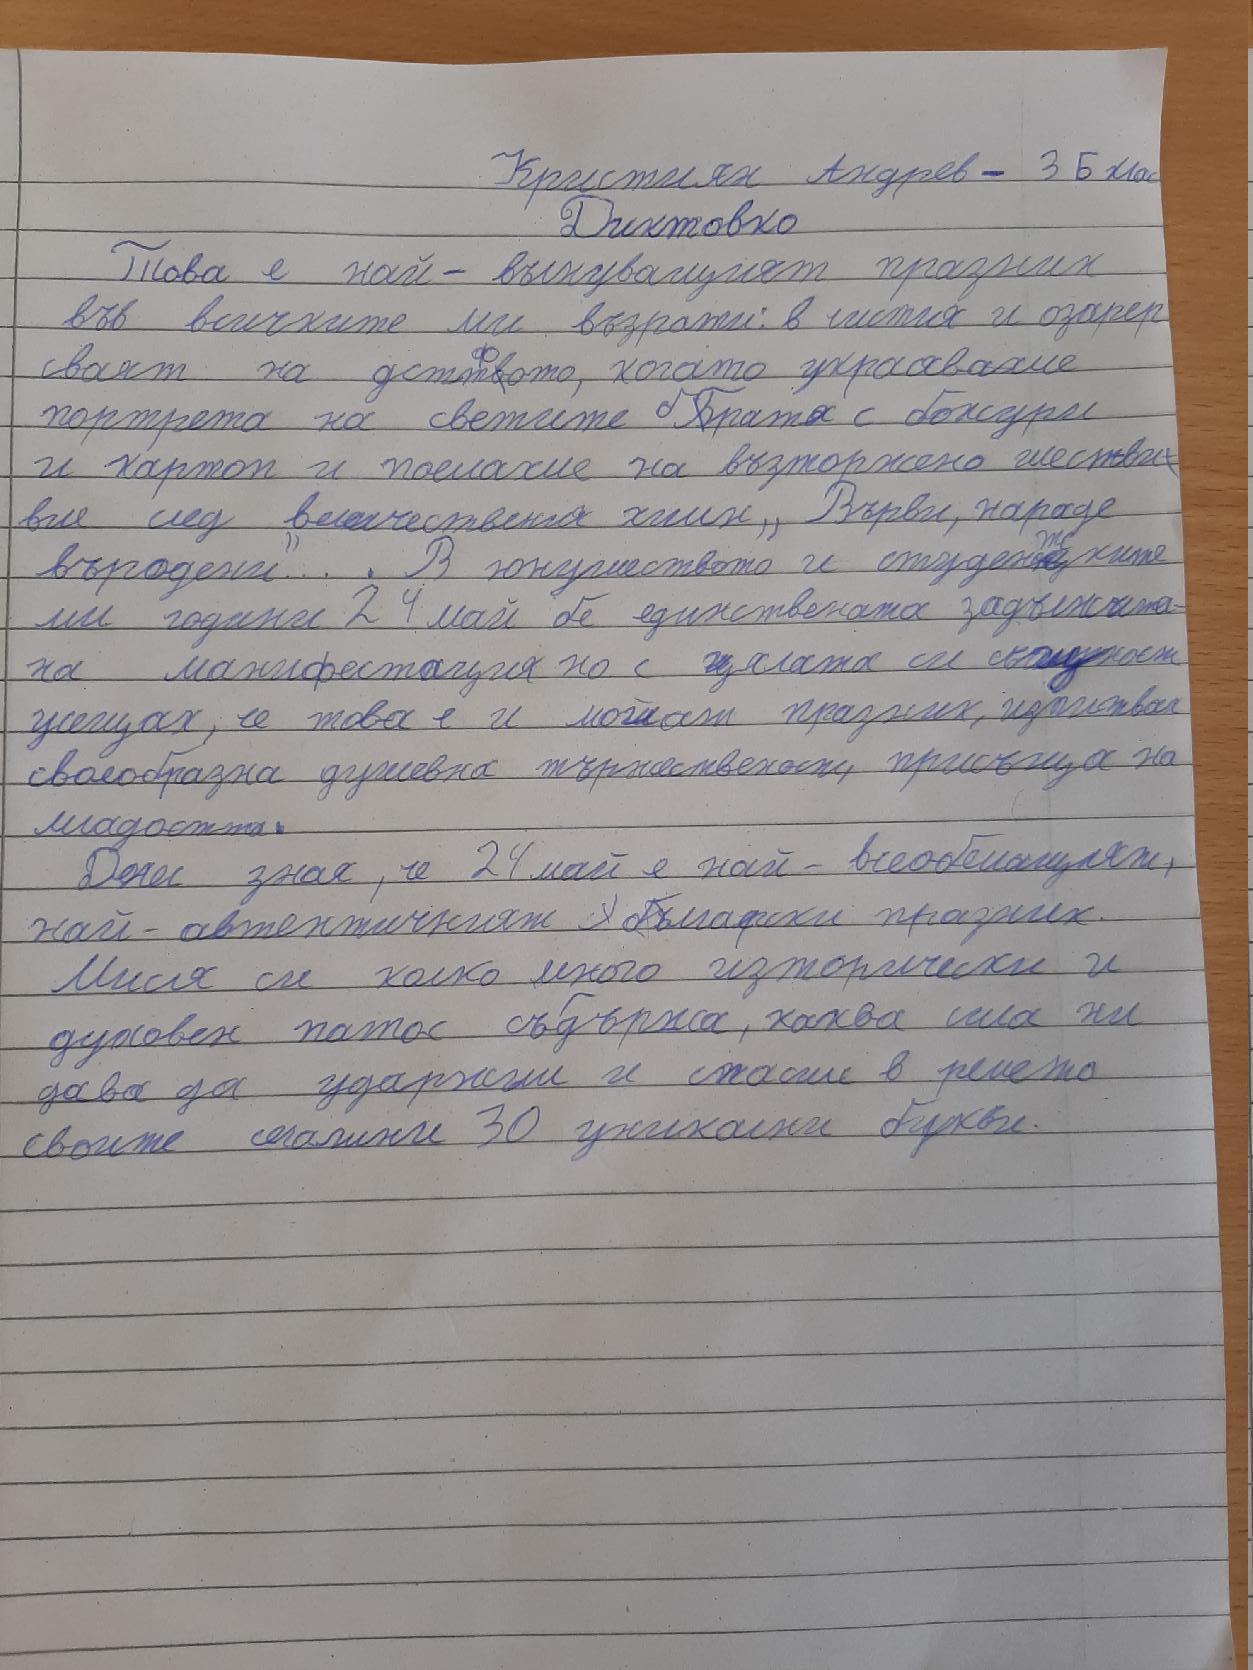 Кристиян Андрев - 3 Б клас
Диктовка
Това е най - вълнуващият празник
във всичките ми възрати: в чистия и озарен
сваят на дството, когато украсвахме
портрета на светите братя с божури
и картон и поелахме на възторжено шестви-
вие след величествения химн „ Върви, народе
въродени" ... . В юнушеството и студентските
ми години 24 май бе единствената задължита-
на манифестация но с цялата си същност
усещах, че това е и моят празник, изпитвах
своеобразна душевна тържественост, присъща на
младостта.
Днес зная, че 24 май е най - всеобемащият,
най - автентичният български празник.
Мисля си колко много изторически и
духовен патос съдържа, каква сила ни
дава да удържим и спасим в релето
своите смалини 30 уникални букви.